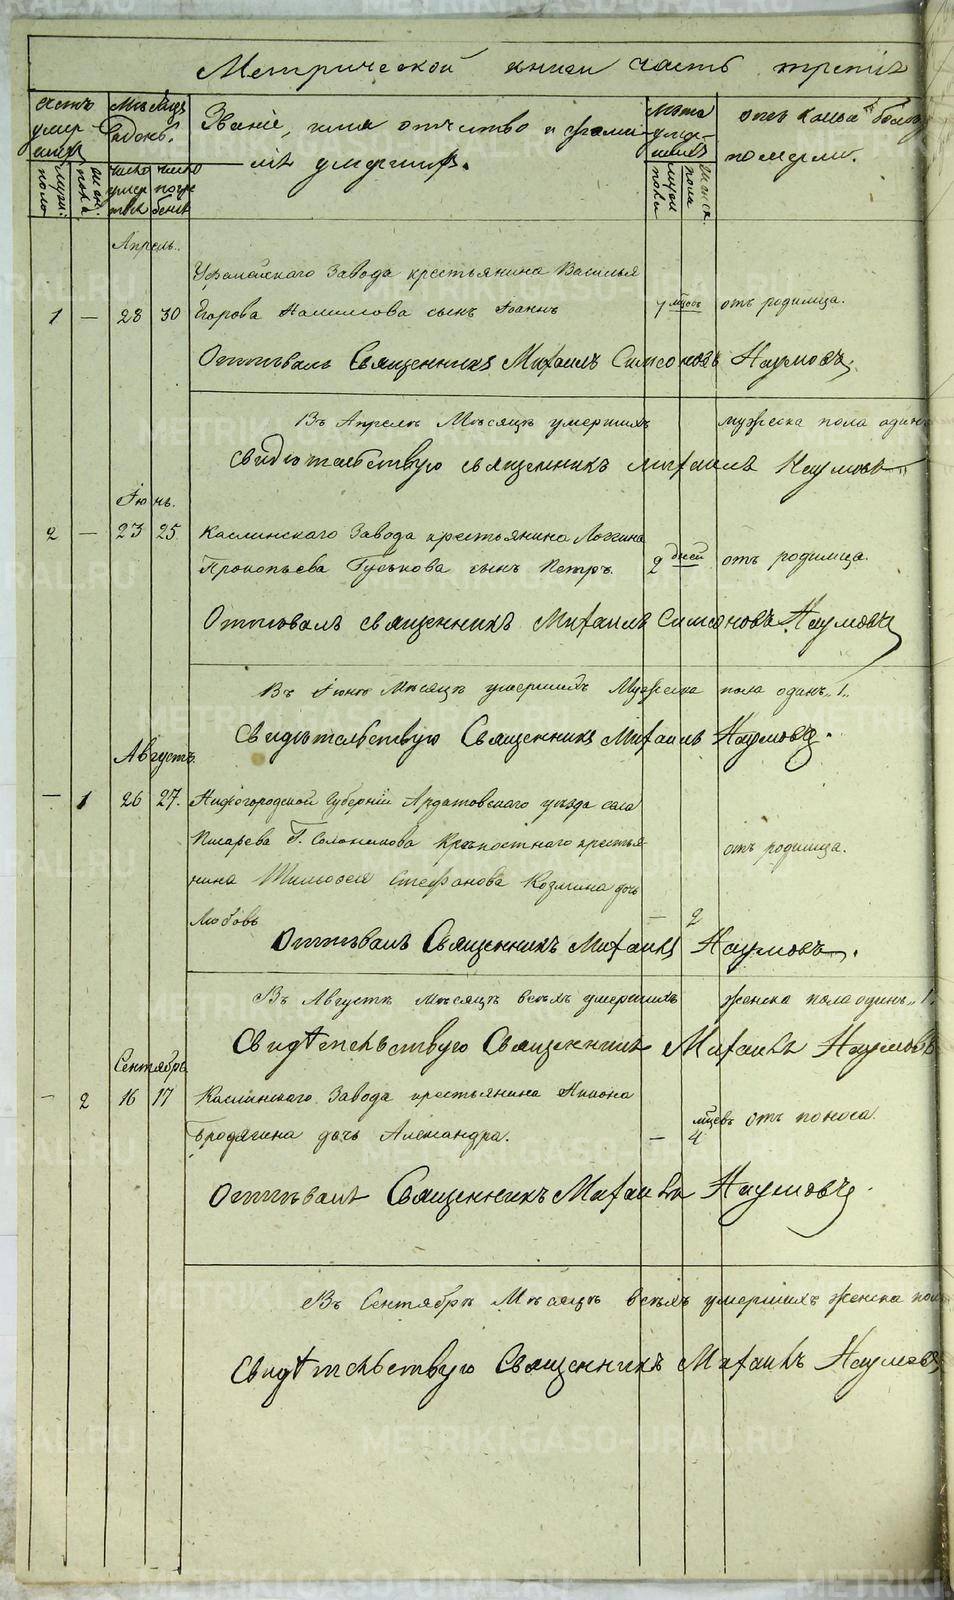 Метрической книги часть третія
Счетъ умершихъ
Мѣсяцъ и день.
Званіе, имя отчество и фамилія умершихъ.
Лѣта умершихъ
отъ какой болѣз
померли.
мужс: пола
женс. пола
число смерти
число погребенія
мужс пола
женск. пола
Апрель.
Уфалейскаго Завода крестьянина Василья
1 — 28 30 Егорова сынъ Іоаннъ 7 мцовъ отъ родимца.
Отпѣвалъ Священникъ Михаилъ Симеоновъ Наумовъ.
Въ Апрелѣ Мѣсяцѣ умершихъ мужеска пола одинъ
Свидѣтельствую священникъ Михаилъ Наумовъ
Іюнь.
2 — 23 25 Каслинскаго Завода крестьянина Логгина
Прокопьева Гуськова сынъ Петръ. 2 дней отъ родимца.
Отпѣвалъ священникъ Михаилъ Симеоновъ Наумовъ
Въ Іюнѣ Мѣсяцѣ умершихъ Мужеска пола одинъ „1.
Свидѣтельствую Священникъ Михаилъ Наумовъ.
Августъ
— 1 26 27. Нижегородской Губерніи Ардатовскаго уѣзда села
Крѣпостнаго крестья-
отъ родимца.
нина Стефанова Козмина дочь
Любовь — 2
Отпѣвалъ Священникъ Михаилъ Наумовъ.
Въ Августѣ Мѣсяцѣ всѣхъ умершихъ женска пола одинъ „1.
Свидѣтельствую Священникъ Михаилъ Наумовъ
Сентябрь
— 2 16 17 Каслинскаго Завода крестьянина
Бродягина дочь Александра. — 4 мцевъ отъ поноса.
Отпѣвалъ Священникъ Михаилъ Наумовъ
Въ Сентябрѣ Мѣсяцѣ всѣхъ умершихъ женска пол
Свидѣтельствую Священникъ Михаилъ Наумовъ
METRIKI.GASO-URAL.RU